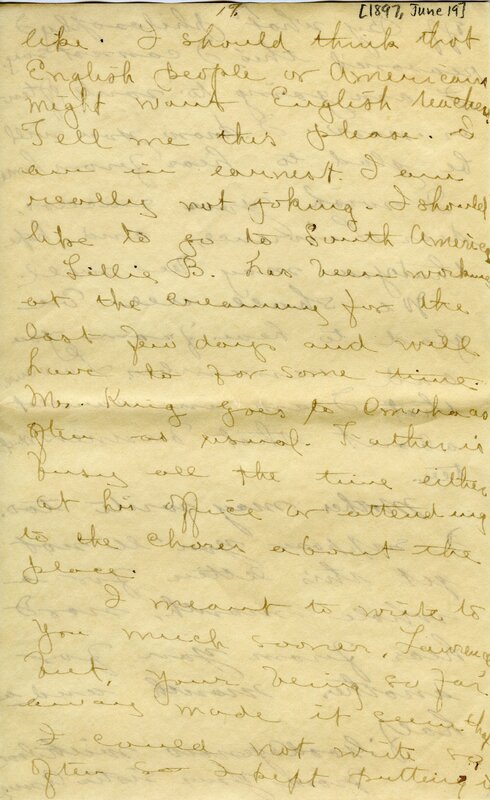 19. [1897, June 19]
like. I should think that
English people or Americans
might want English teachers
Tell me this please. I
am in earnest. I am
really not joking. I should
like to go to South America
Lillie B. has been working
at the creamery for the
last few days and will
have to for some time.
Mr. King goes to Omaha as
often as usual. Father is
busy all the time either
at his office or attending
to the chores about the
place.
I meant to write to
you much sooner, Lawrence
but, your being so far
away made it seem that
I could not write so
often so I kept putting i